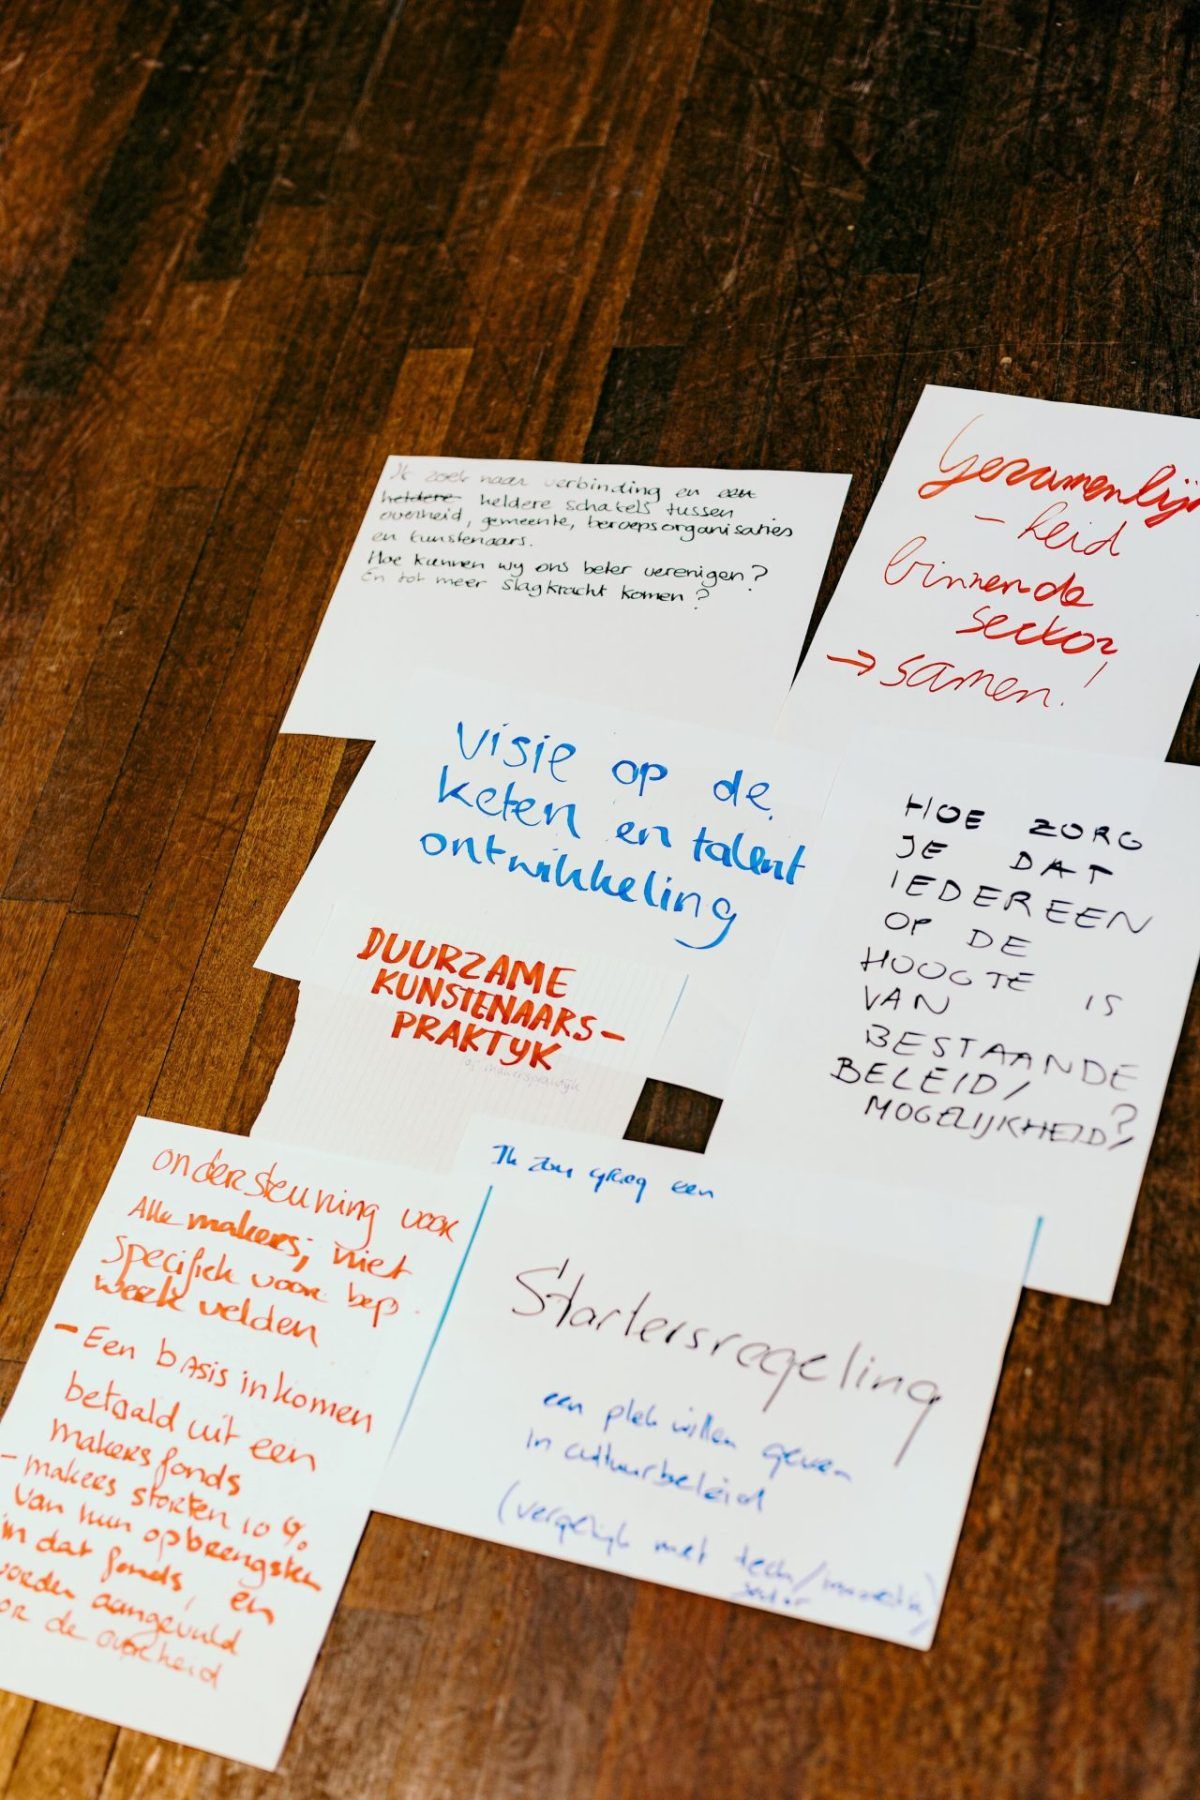 Ik zoek naar verbinding en een
heldere heldere schakels tussen
overheid, gemeente, beroepsorganisaties
en kunstenaars.
Hoe kunnen wij ons beter verenigen?
En tot meer slagkracht komen?
Gezamenlijk
- heid
binnen de
sector
→ samen!
Visie op de
keten en talent
ontwikkeling
HOE ZORG
JE DAT
IEDEREEN
OP DE
HOOGTE IS
VAN
BESTAANDE
BELEID/
MOGELIJKHEID?
DUURZAME
KUNSTENAARS-
PRAKTYK
of makerspraktijk
ondersteuning voor
Alle makers; niet
specifiek voor bep.
werk velden
- Een basis inkomen
betaald uit een
makers fonds
- makers storten 10%
van hun opbrengsten
in dat fonds, en
worden aangevuld
or de overheid
Ik zou graag een
Startersregeling
een plek willen geven
in cultuurbeleid
(vergelijk met tech/
sector